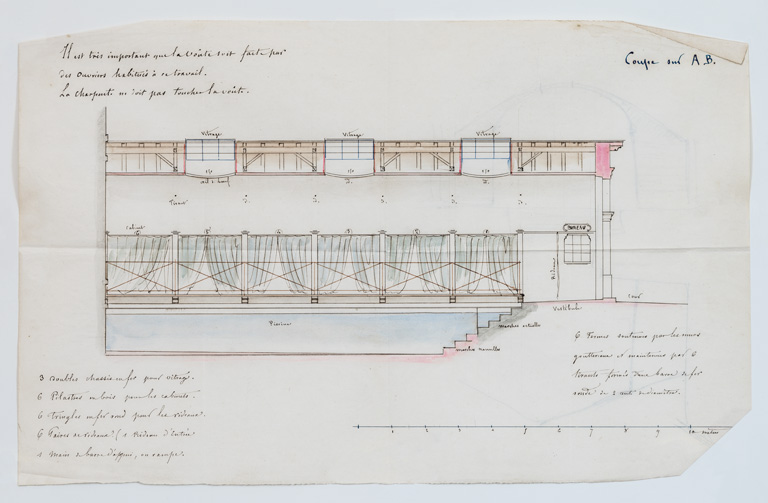 Il est très important que la voûte soit faite par
des ouvriers habitués à ce travail.
La charpente ne doit pas toucher la voûte.
Coupe sur A.B.
Vitrage
Vitrage
Vitrage
Tirant
d°
d°
d°
d°
d°
Cabinet
1
2
BUREAU
Rideau
Vestibule
Piscine
marches actuelles
marches nouvelles
6 Fermes soutenues par les murs
gouttereaux et maintenues par 6
tirants formés d'une barre de fer
ronde de 2 cent. de diamètre.
3 doubles chassis en fer pour vitrage.
6 Pilastres en bois pour les cabinets.
6 tringles en fer rond pour les rideaux.
6 Paires de rideaux / 1 Rideau d'Entrée
1 Main de barre d'appui, ou rampe.
1 2 3 4 5 6 7 8 9 10 mètres